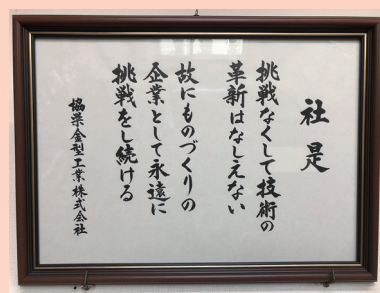 社是
挑戦なくして技術の
革新はなしえない
故にものづくりの
企業として永遠に
挑戦をし続ける
協栄金型工業株式会社